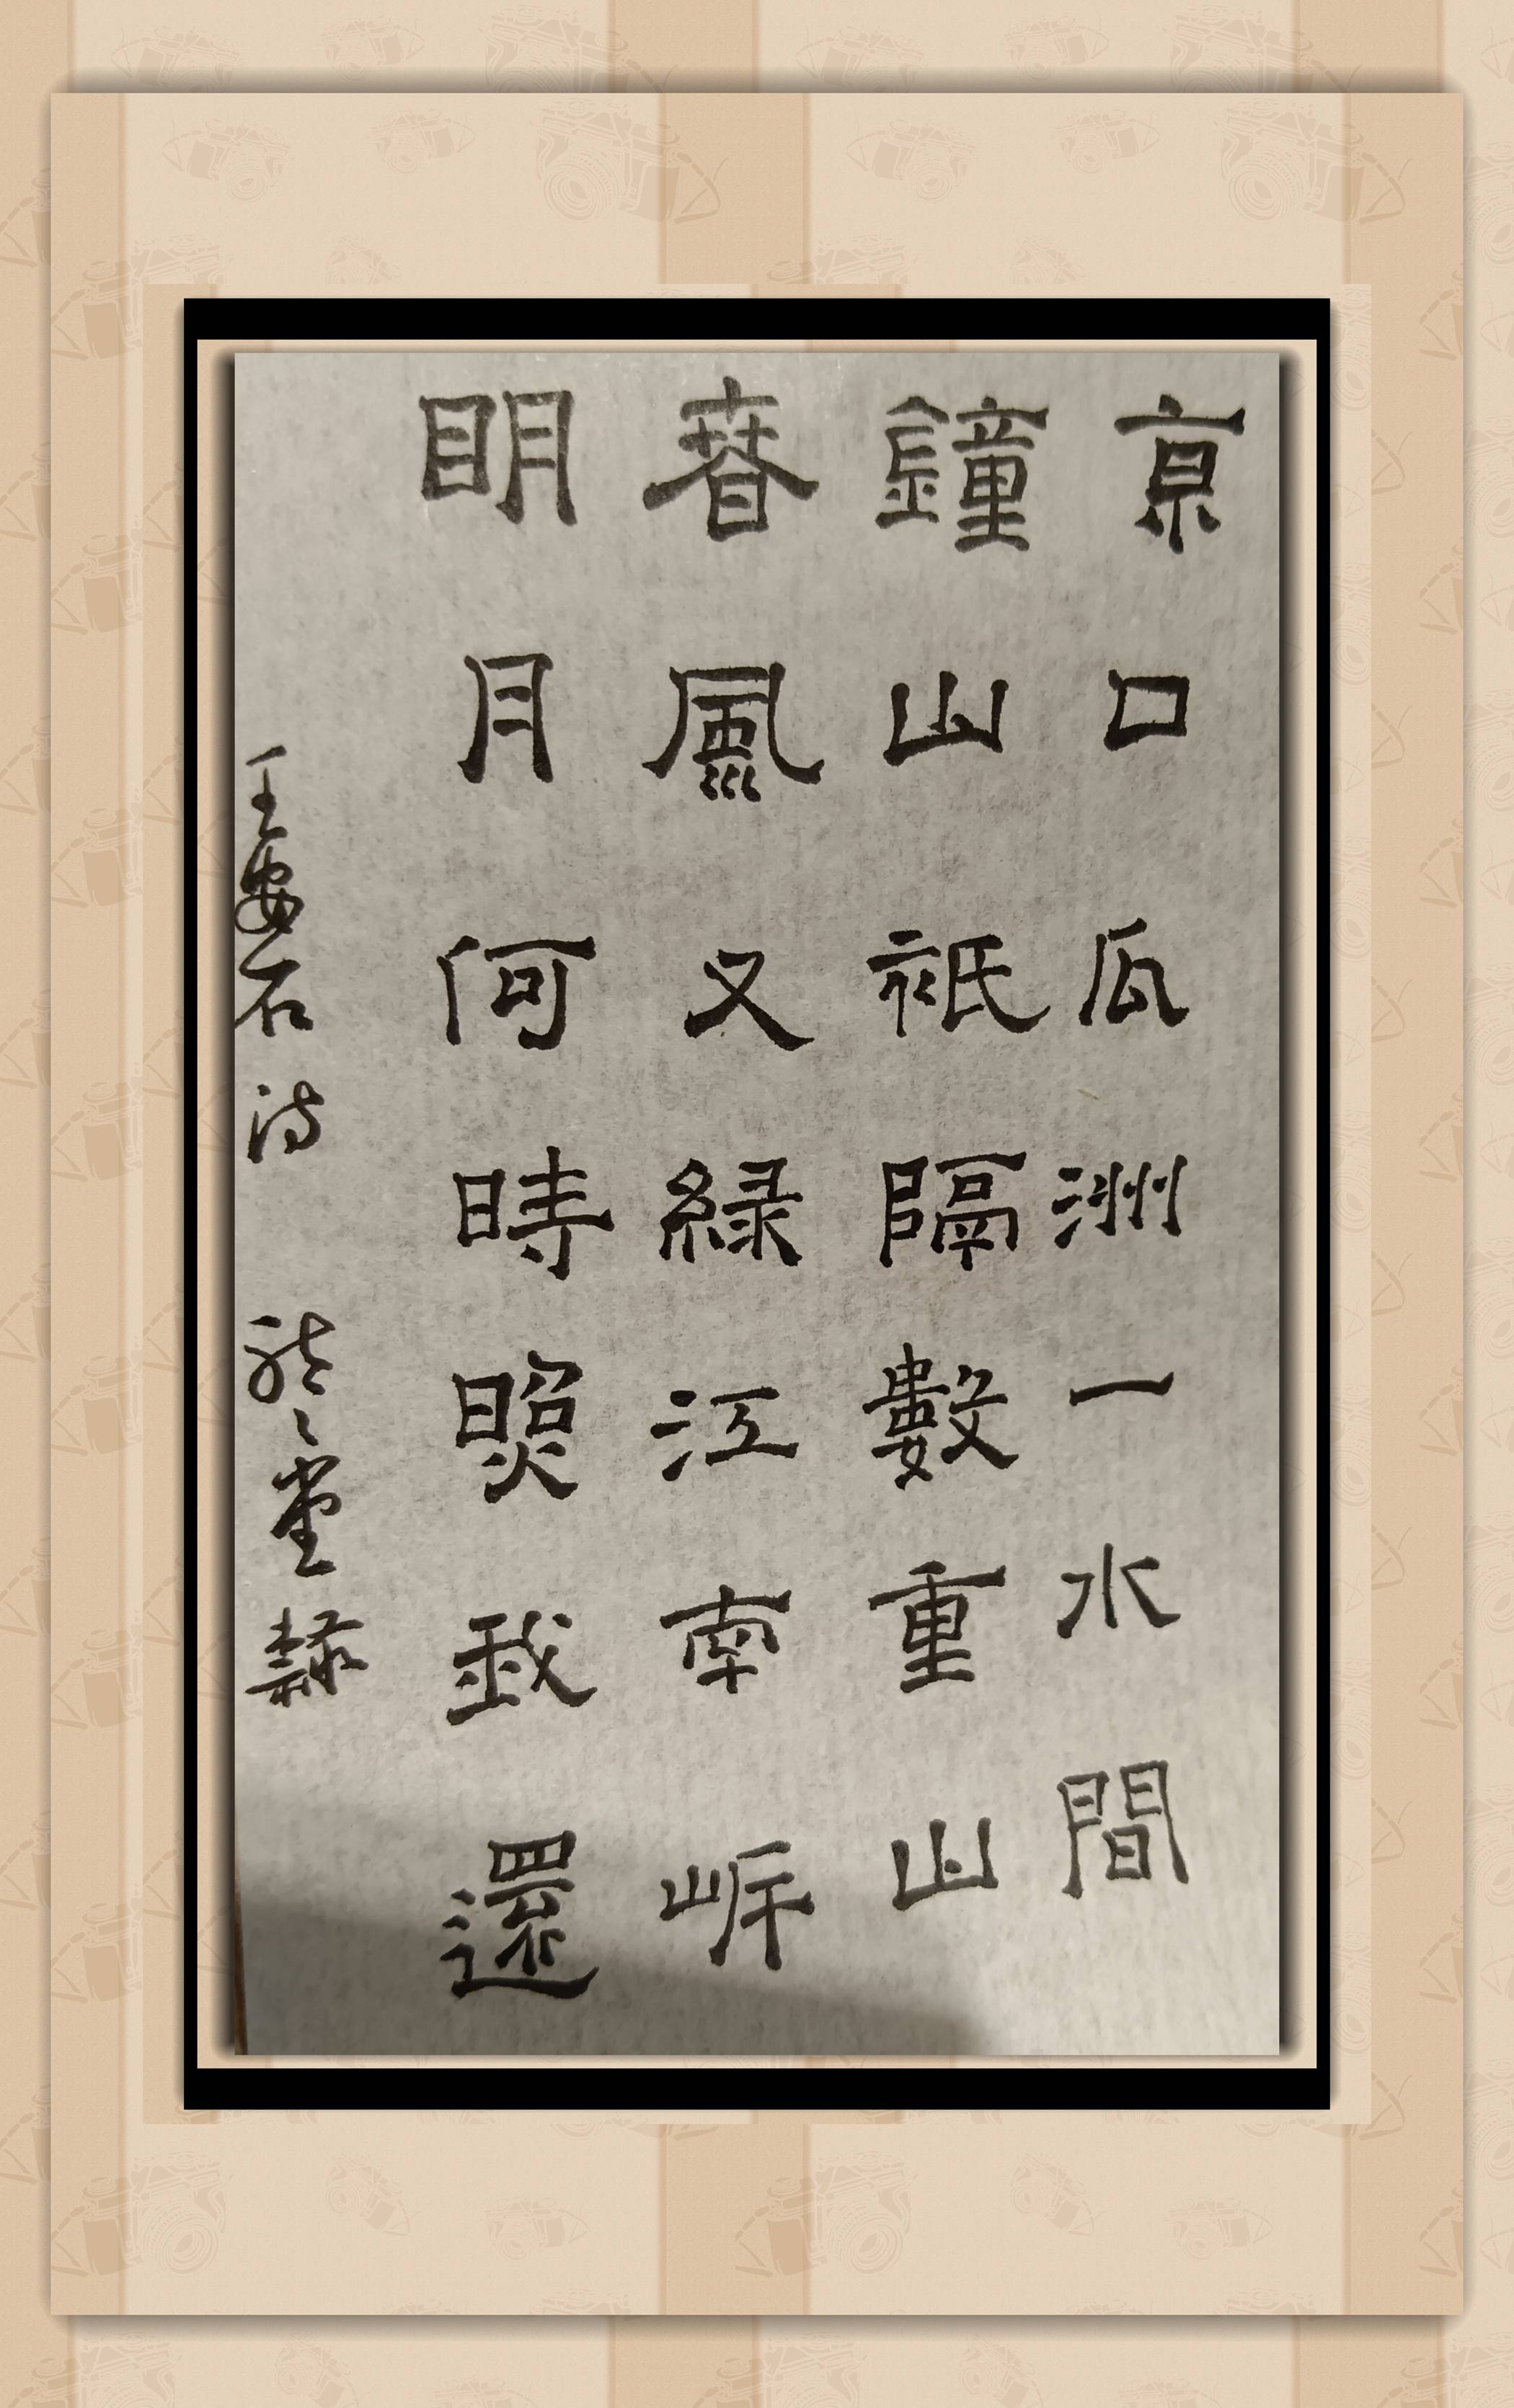 京口瓜洲一水間
鐘山祇隔數重山
春風又綠江南岸
明月何時照我還
王安石詩 堂隸